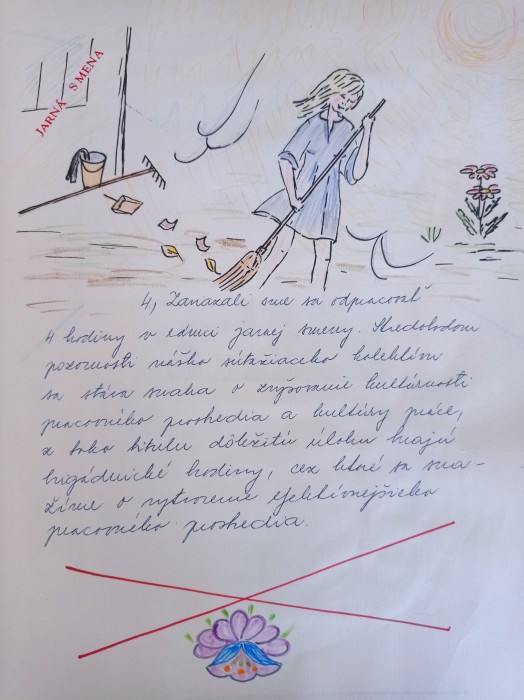 JARNÁ SMENA
4, Zaviazali sme sa odpracovať
4 hodiny v rámci jarnej smeny. Stredobodom
pozornosti nášho súťažiaceho kolektívu
sa stáva snaha o zvyšovanie kultúrnosti
pracovného prostredia a kultúry práce,
z toho titulu dôležitú úlohu hrajú
brigádnické hodiny, cez ktoré sa sna-
žíme o vytvorenie efektívnejšieho
pracovného prostredia.